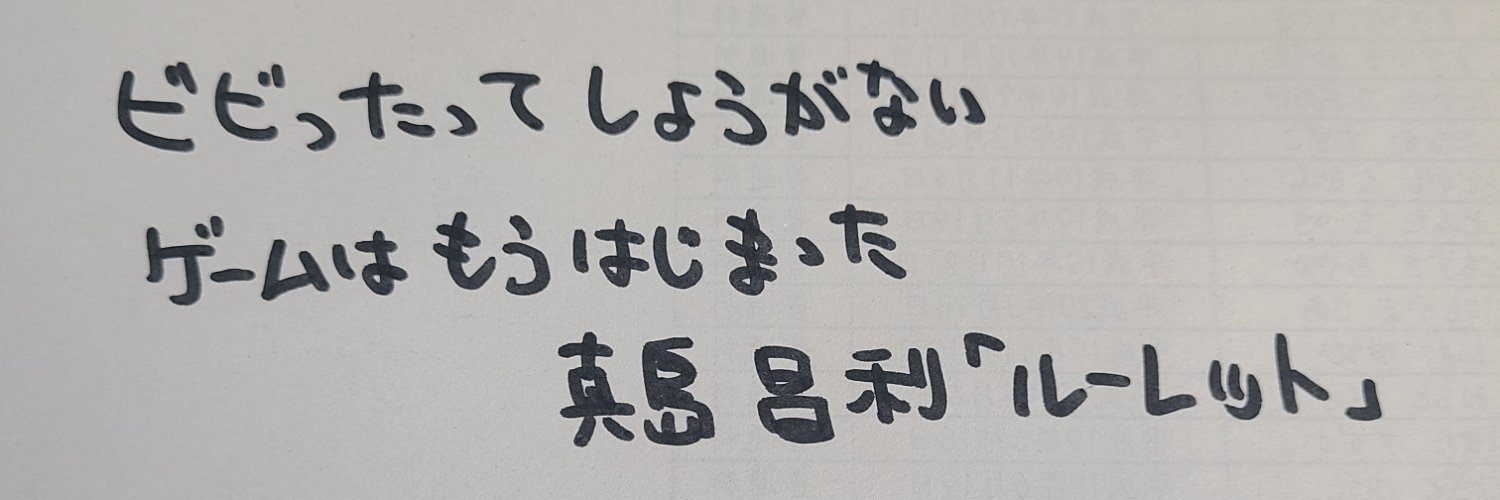 ビビったってしょうがない
ゲームはもうはじまった
真島呂利「ルーレット」